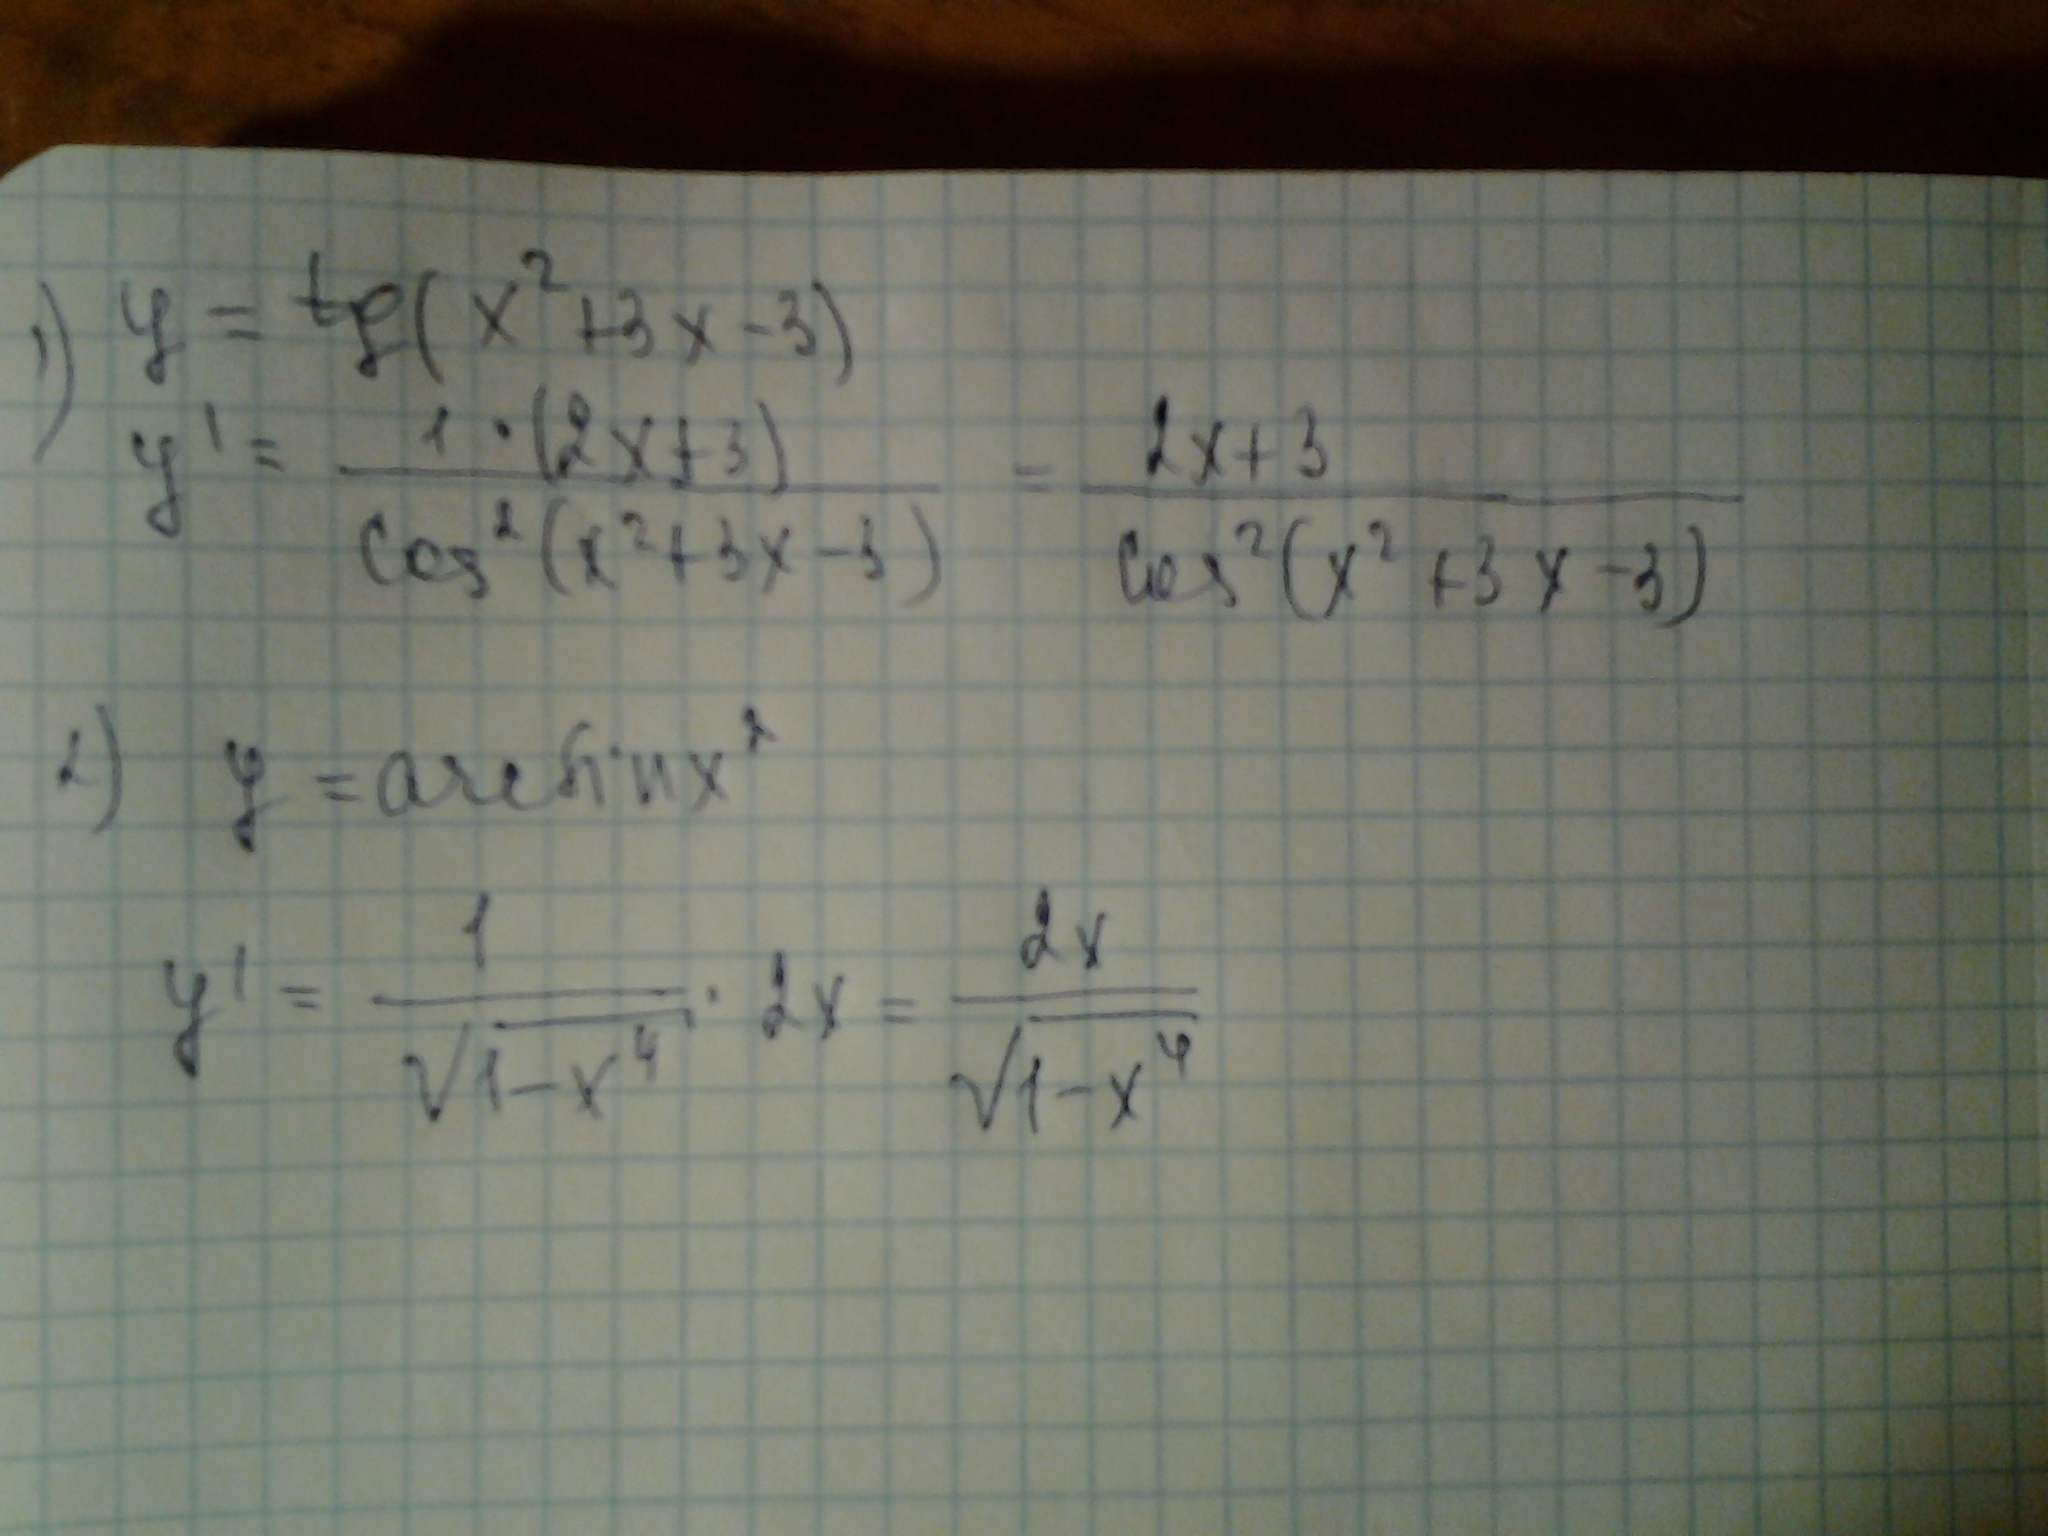 1) y = tg(x² + 3x - 3)
y' = 1 · (2x+3) / cos² (x² + 3x - 3) = 2x + 3 / cos² (x² + 3x - 3)
2) y = arcsin x²
y' = 1 / √1 - x⁴ · 2x = 2x / √1 - x⁴